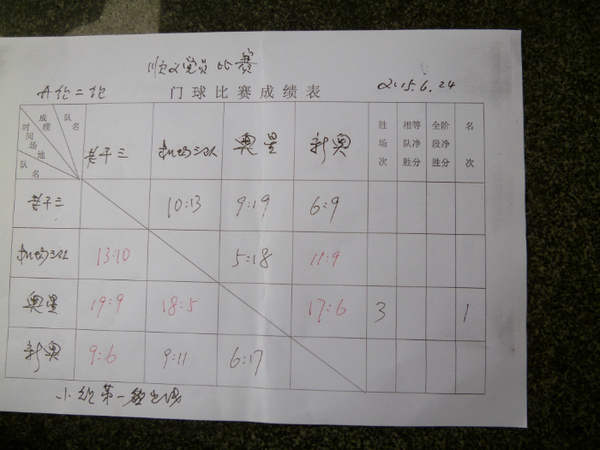 顺义党员比赛
门球比赛成绩表 2015.6.24
队名 成绩 时间场地 队名
老干三 机场三队 奥星 新奥 胜场次 相等队净胜分 全阶段净胜分 名次
老干三 10:13 9:19 6:9
机场三队 13:10 5:18 11:9
奥星 19:9 18:5 17:6 3 1
新奥 9:6 9:11 6:17
小组第一